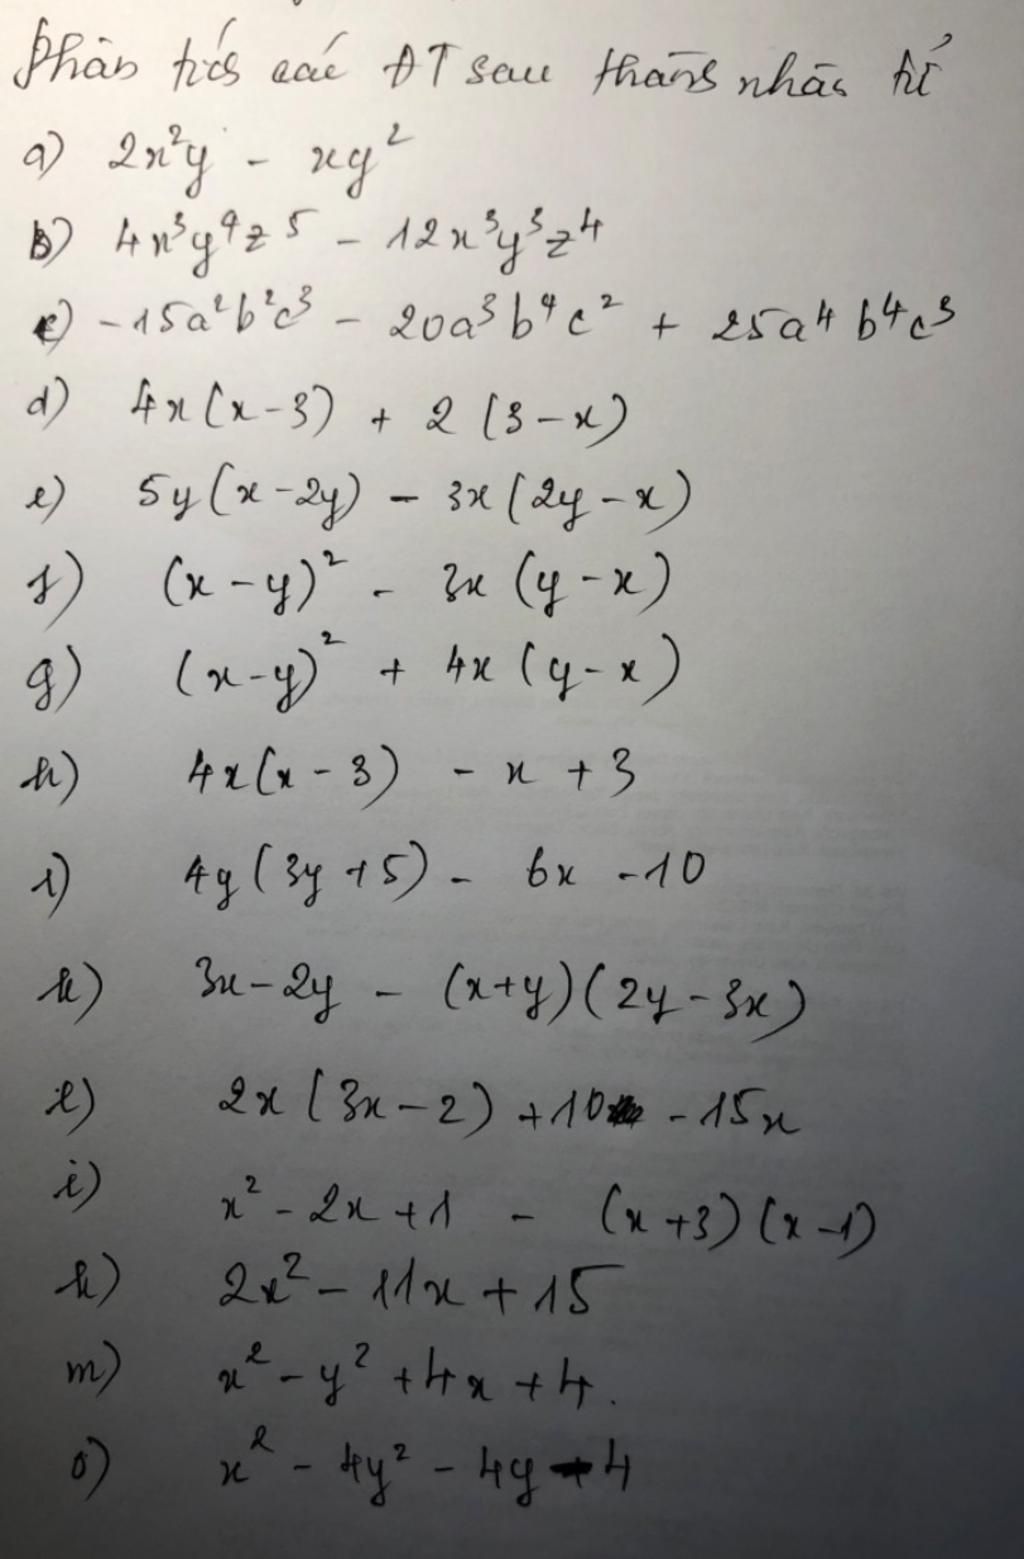 Phân tích các ĐT sau thành nhân tử
a) 2x²y - xy²
b) 4x³y⁴z⁵ - 12x³y³z⁴
c) -15a²b²c³ - 20a³b⁴c² + 25a⁴b⁴c³
d) 4x(x-3) + 2(3-x)
e) 5y(x-2y) - 3x(2y-x)
f) (x-y)² - 3x(y-x)
g) (x-y)² + 4x(y-x)
h) 4x(x-3) - x + 3
i) 4y(3y+5) - 6x - 10
k) 3x-2y - (x+y)(2y-3x)
l) 2x(3x-2) + 10 - 15x
i) x² - 2x + 1 - (x+3)(x-1)
k) 2x² - 11x + 15
m) x² - y² + 4x + 4.
o) x² - 4y² - 4y 4